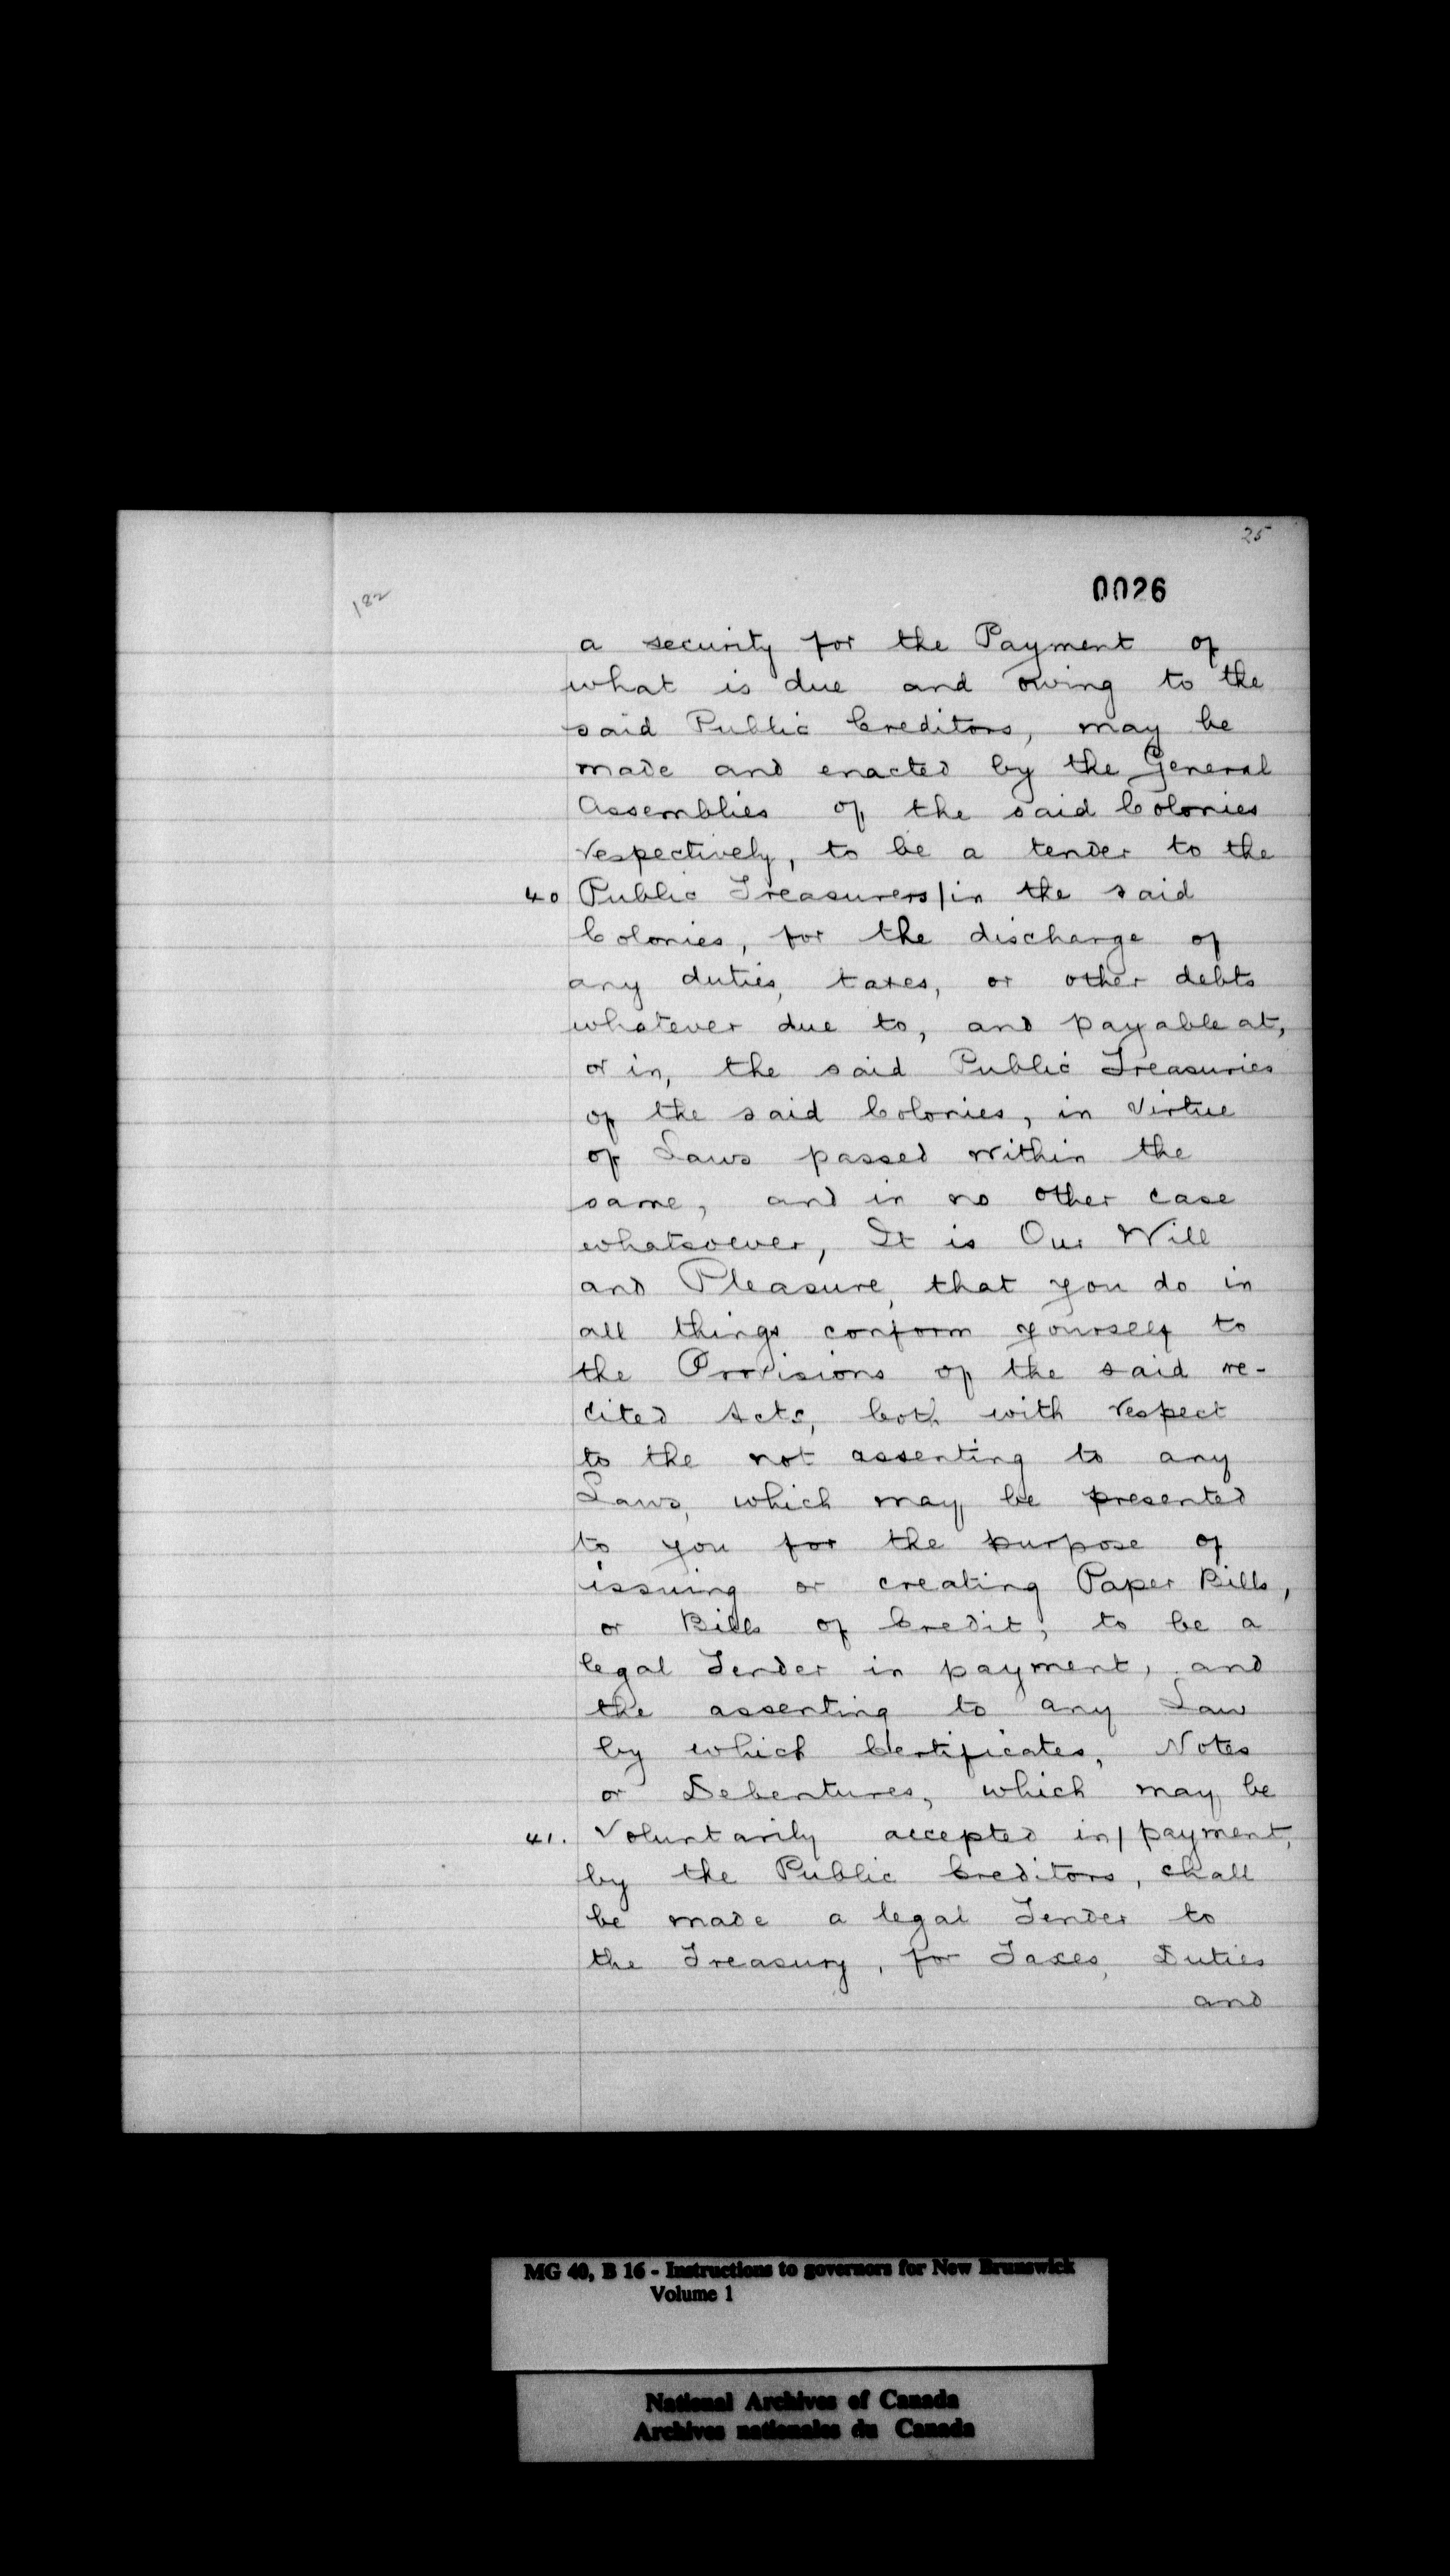 25
0026
182
a security for the Payment of
what is due and owing to the
said Public Creditors, may be
made and enacted by the General
Assemblies of the said Colonies
respectively, to be a tender to the
40 Public Treasurers/in the said
Colonies, for the discharge of
any duties, taxes, or other debts
whatever due to, and payable at,
or in, the said Public Treasuries
of the said Colonies, in Virtue
of Laws passed within the
same, and in no other case
whatsoever, It is Our Will
and Pleasure, that you do in
all things conform yourself to
the Provisions of the said re-
cited Acts, both with respect
to the not assenting to any
Laws, which may be presented
to you for the purpose of
issuing or creating Paper Bills,
or Bills of Credit, to be a
legal Tender in payment, and
the assenting to any Law
by which Certificates, Notes
or Debentures, which may be
41. Voluntarily accepted in/payment,
by the Public Creditors, shall
be made a legal Tender to
the Treasury, for Taxes, Duties
and
MG 40, B 16 - Instructions to governors for New Brunswick
Volume 1
National Archives of Canada
Archives nationales du Canada